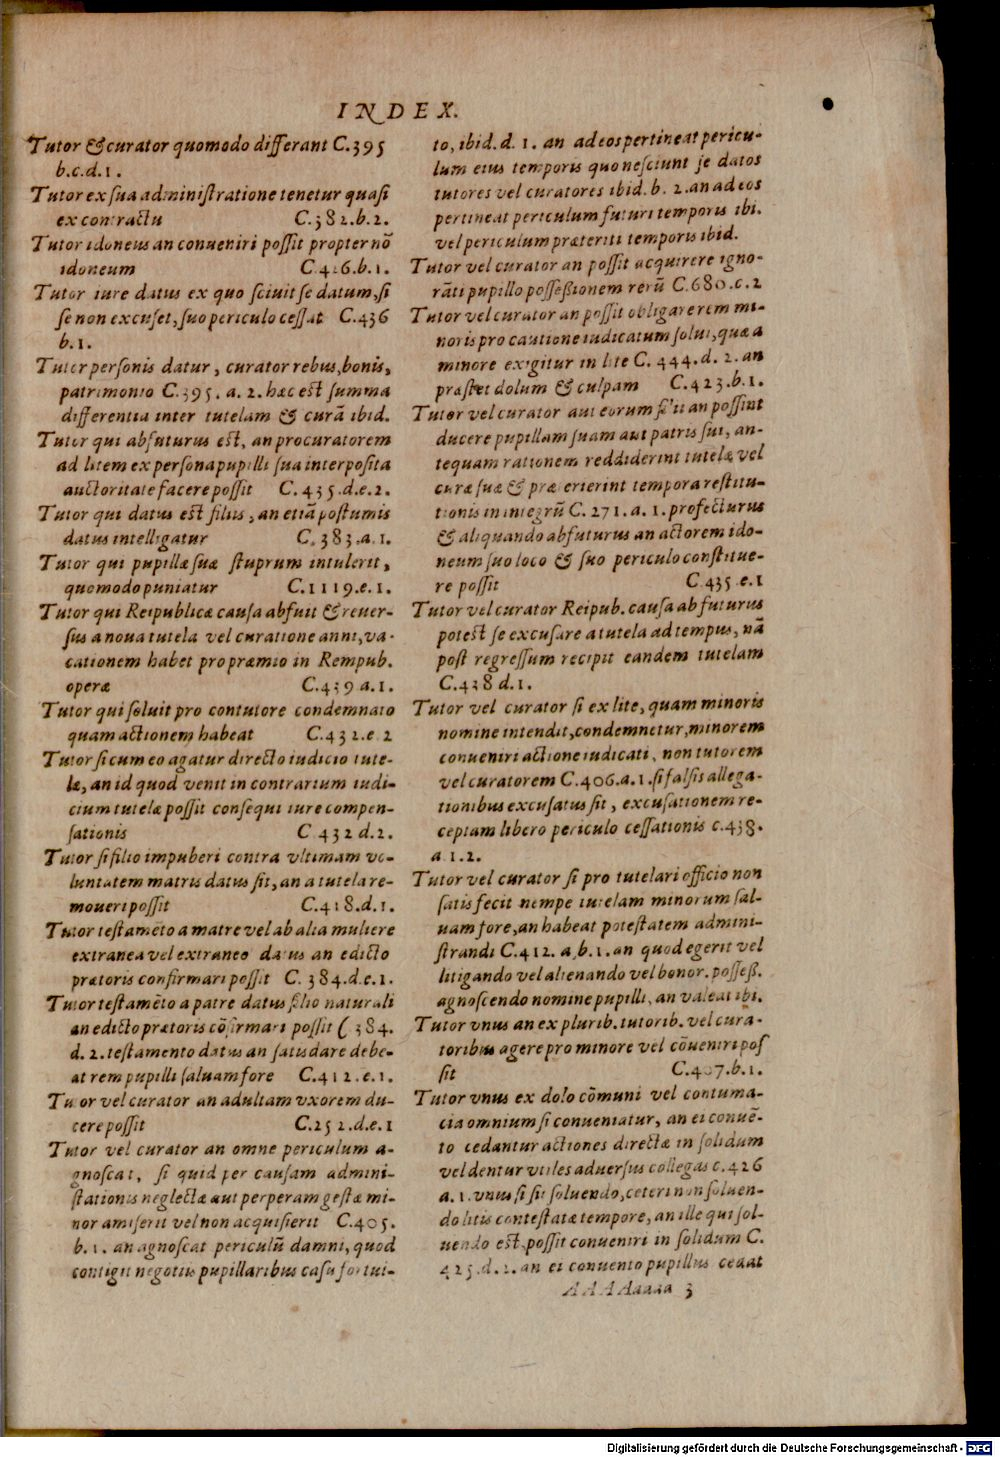 INDEX.
Tutor & curator quomodo differant C.395
b.c.d.1.
Tutor ex sua administratione tenetur quasi
ex contractu C.382.b.2.
Tutor idoneus an conueniri possit propter nō
idoneum C.416.b.1.
Tutor iure datus ex quo sciuit se datum, si
se non excuset, suo periculo cessat C.436
b.1.
Tutor personis datur, curator rebus, bonis,
patrimonio C.395.a.2. hæc est summa
differentia inter tutelam & curā ibid.
Tutor qui abfuturus est, an procuratorem
ad litem ex persona pupilli sua interposita
auctoritate facere possit C.435.d.e.2.
Tutor qui datus est filius, an etiā postumis
datus intelligatur C.383.a.1.
Tutor qui pupillæ suæ stuprum intulerit,
quomodo puniatur C.1119.e.1.
Tutor qui Reipublicæ causa abfuit & reuer-
sus a noua tutela vel curatione anni, va-
cationem habet pro præmio in Rempub.
operæ C.439 a.1.
Tutor qui soluit pro contutore condemnato
quam actionem habeat C.432.e.2
Tutor si cum eo agatur directo iudicio tute-
læ, an id quod venit in contrarium iudi-
cium tutelæ possit consequi iure compen-
sationis C 432 d.2.
Tutor si filio impuberi contra vltimam vo-
luntatem matris datus sit, an a tutela re-
moueri possit C.418.d.1.
Tutor testamēto a matre vel ab alia muliere
extranea vel extraneo datus an edicto
prætoris confirmari possit C. 384.d.e.1.
Tutor testamēto a patre datus filio naturali
an edicto prætoris cōfirmari possit C 384.
d.2. testamento datus an satisdare debe-
at rem pupilli saluam fore C.412.e.1.
Tutor vel curator an adultam vxorem du-
cere possit C.252.d.e.1
Tutor vel curator an omne periculum a-
gnoscat, si quid per causam admini-
strationis neglectæ aut perperam gestæ mi-
nor amiserit vel non acquisierit C.405.
b.1. an agnoscat periculū damni, quod
contigit negotiis pupillaribus casu fortui-
to, ibid.d.1. an ad eos pertineat pericu-
lum eius temporis quo nesciunt se datos
tutores vel curatores ibid.b.2.an ad eos
pertineat periculum futuri temporis ibi.
vel periculum præteriti temporis ibid.
Tutor vel curator an possit acquirere igno-
rāti pupillo possessionem rerū C.680.c.2
Tutor vel curator an possit obligare rem mi-
noris pro cautione iudicatum solui, quæ a
minore exigitur in lite C. 444.d.2.an
præstet dolum & culpam C.423.b.1.
Tutor vel curator aut eorum filii an possint
ducere pupillam suam aut patris sui, an-
tequam rationem reddiderint tutelæ vel
curæ suæ & præterierint tempora restitu-
tionis in integrū C.271.a.1.profecturus
& aliquando abfuturus an actorem ido-
neum suo loco & suo periculo constitue-
re possit C 435.e.1
Tutor vel curator Reipub. causa abfuturus
potest se excusare a tutela ad tempus, nā
post regressum recipit eandem tutelam
C.438 d.1.
Tutor vel curator si ex lite, quam minoris
nomine intendit, condemnetur, minorem
conueniri actione iudicati, non tutorem
vel curatorem C.406.a.1.si falsis allega-
tionibus excusatus sit, excusationem re-
ceptam libero periculo cessationis c.438.
a.1.2.
Tutor vel curator si pro tutelari officio non
satis fecit nempe tutelam minorum sal-
uam fore, an habeat potestatem admini-
strandi C.412.a.b.1.an quod egerit vel
litigando vel alienando vel bonor. posseß.
agnoscendo nomine pupilli, an valeat ibi.
Tutor vnus an ex plurib. tutorib. vel cura-
toribus agere pro minore vel cōueniri pos
sit C.407.b.1.
Tutor vnus ex dolo cōmuni vel contuma-
cia omnium si conueniatur, an ei conuē-
to cedantur actiones directæ in solidum
vel dentur vtiles aduersus collegas c.426
a.1.vnus si sit soluendo, ceteri non soluen-
do litis contestatæ tempore, an ille qui sol-
uendo est, possit conueniri in solidum C.
425.d.2.an ei conuento pupillus cedat
AAAAaaaa 3
Digitalisierung gefördert durch die Deutsche Forschungsgemeinschaft - DFG